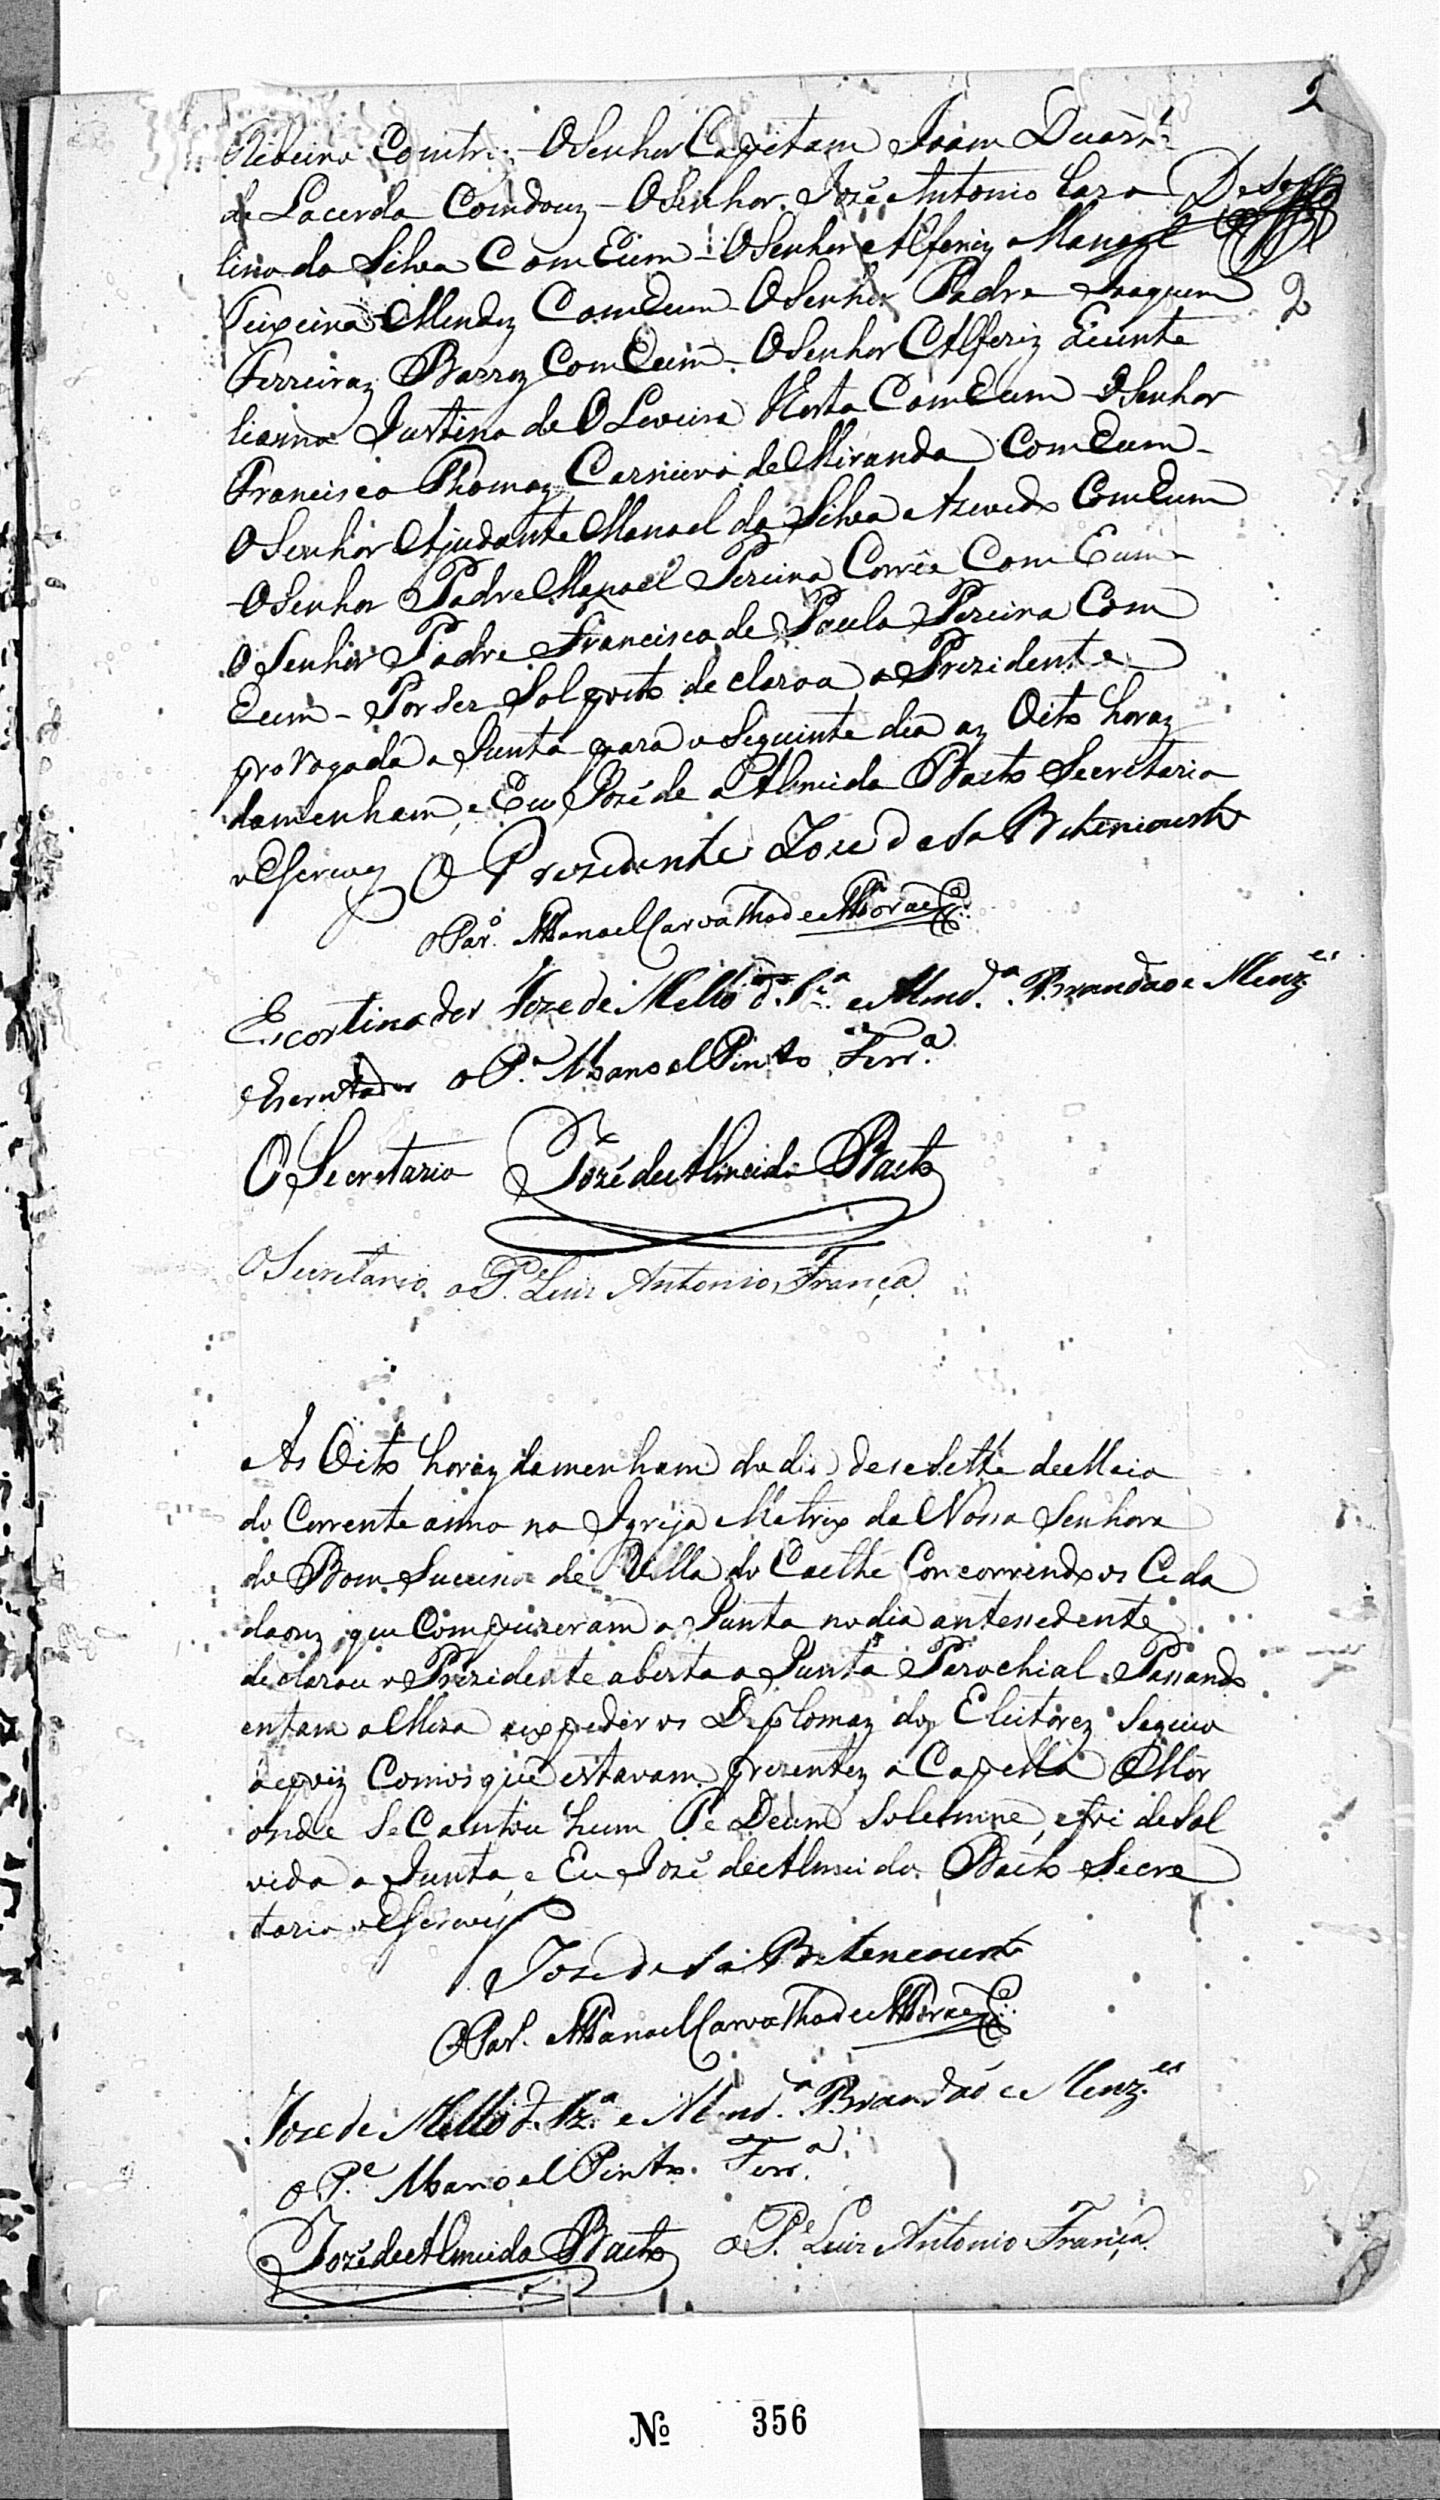 2
Ribeiro Comtres - O Senhor Capitam Joam Duarte
de Lacerda Comdouz - O Senhor José Antonio Caza
lino da Silva Com Eum - O Senhor Alferiz Manoel
2
Teixeira Mendez Com Eum - O Senhor Padre Joaquim
Ferreiraz Barroz Com Eum - O Senhor Alferiz Licente
lianno Justino de OLiveira Horta Com Eum - O Senhor
Francisco Thomaz Carneiro de Miranda Com Eum -
O Senhor Ajudante Manoel da Silva Azevedo Com Eum
- O Senhor Padre Manoel Pereira Corrêa Com Eum -
O Senhor Padre Francisco de Paula Pereira Com
Eum - Por ser Sol posto declaroa o Prezidente
proRogada a Junta para o Seguinte dia az Oito horaz
damenham, e Eu José de Almeida Basto Secretario
o Escrevy O Prezidente Joze de Sa Betencourt
o Par.º Manoel Carvalho de Moraes
Escortinador Joze de Mello d. Sz.ª e Almd.ª Brandao e Menz.es
Escrutador o P.e Manoel Pinto Ferr.ª
O Secretario José de Almeida Basto
O Secretario o P.e Luis Antonio França
As Oito horaz damenham do dia desesette de Maio
do Corrente anno na Igreja Matriz de Nossa Senhora
do Bom Sucesso de Villa do Caethé Concorrendo os Cida
daonz que Compuzeram a Junta no dia antessedente
declarou o Prezidente aberta a Junta Parochial Passando
entam a Meza a expedir os Diplomaz dos Eleitorez Seguio
depoiz Com os que estavam prezentez a Capella Mor
onde Se Cantou hum Te Deum Solemne, e foi desol
vida a Junta, e Eu José de Almeida Basto Secre
tario o Escrevy
Joze de Sá Betencourt
O Par.º Manoel Carvalho de Moraes
Joze de Mello d. Sz.ª e Almd.ª Brandão e Menz.es
o P.e Manoel Pinto Ferr.ª
José de Almeida Basto o P.e Luis Antonio França
No 356